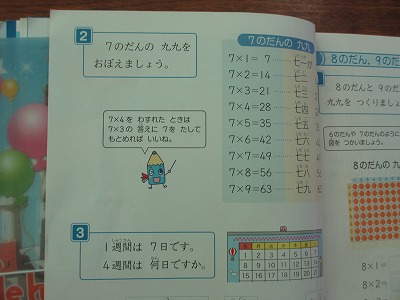 2
7のだんの 九九を
おぼえましょう。
7×4を わすれた ときは
7×3の 答えに 7を たして
もとめれば いいね。
7のだんの 九九
7×1= 7
7×2=14 七二
7×3=21 七三
7×4=28 七四
7×5=35 七五
7×6=42 七六
7×7=49 七七
7×8=56 七八
7×9=63 七九
3
1週間は 7日です。
4週間は 何日ですか。
1 2 3 4 5 6 7
8 9 10 11 12 13 14
15 16 17 18 19 20 21
8のだん, 9のだ
8のだんと 9のだ
九九を つくりましょ
6のだんや 7のだんのように
図を つかいましょう。
8のだんの 九
8×1=
8×2=